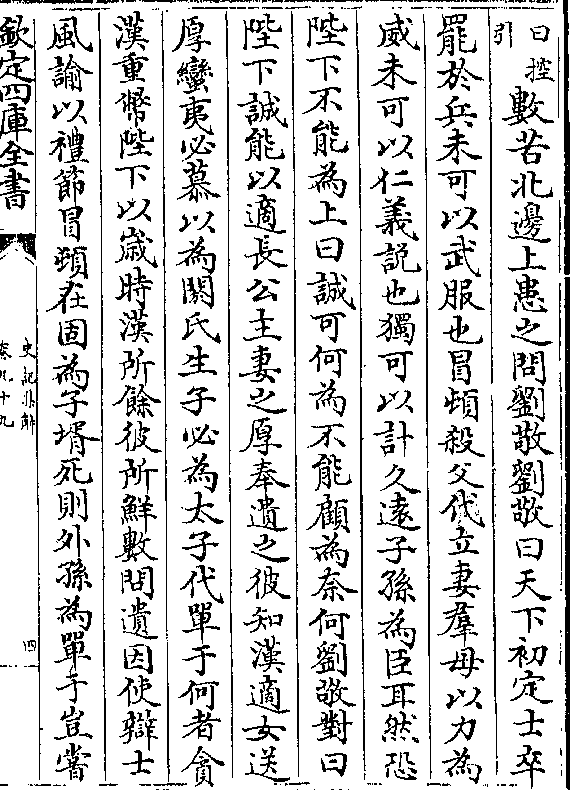 曰控引數苦北邊上患之問劉敬劉敬曰天下初定士卒
罷於兵未可以武服也冒頓殺父代立妻羣母以力為
威未可以仁義說也獨可以計久遠子孫為臣耳然恐
陛下不能為上曰誠可何為不能顧為奈何劉敬對曰
陛下誠能以適長公主妻之厚奉遺之彼知漢適女送
厚蠻夷必慕以為閼氏生子必為太子代單于何者貪
漢重幣陛下以歲時漢所餘彼所鮮數問遺因使辯士
風諭以禮節冒頓在固為子壻死則外孫為單于豈嘗
欽定四庫全書
史記集解
卷九十九
四